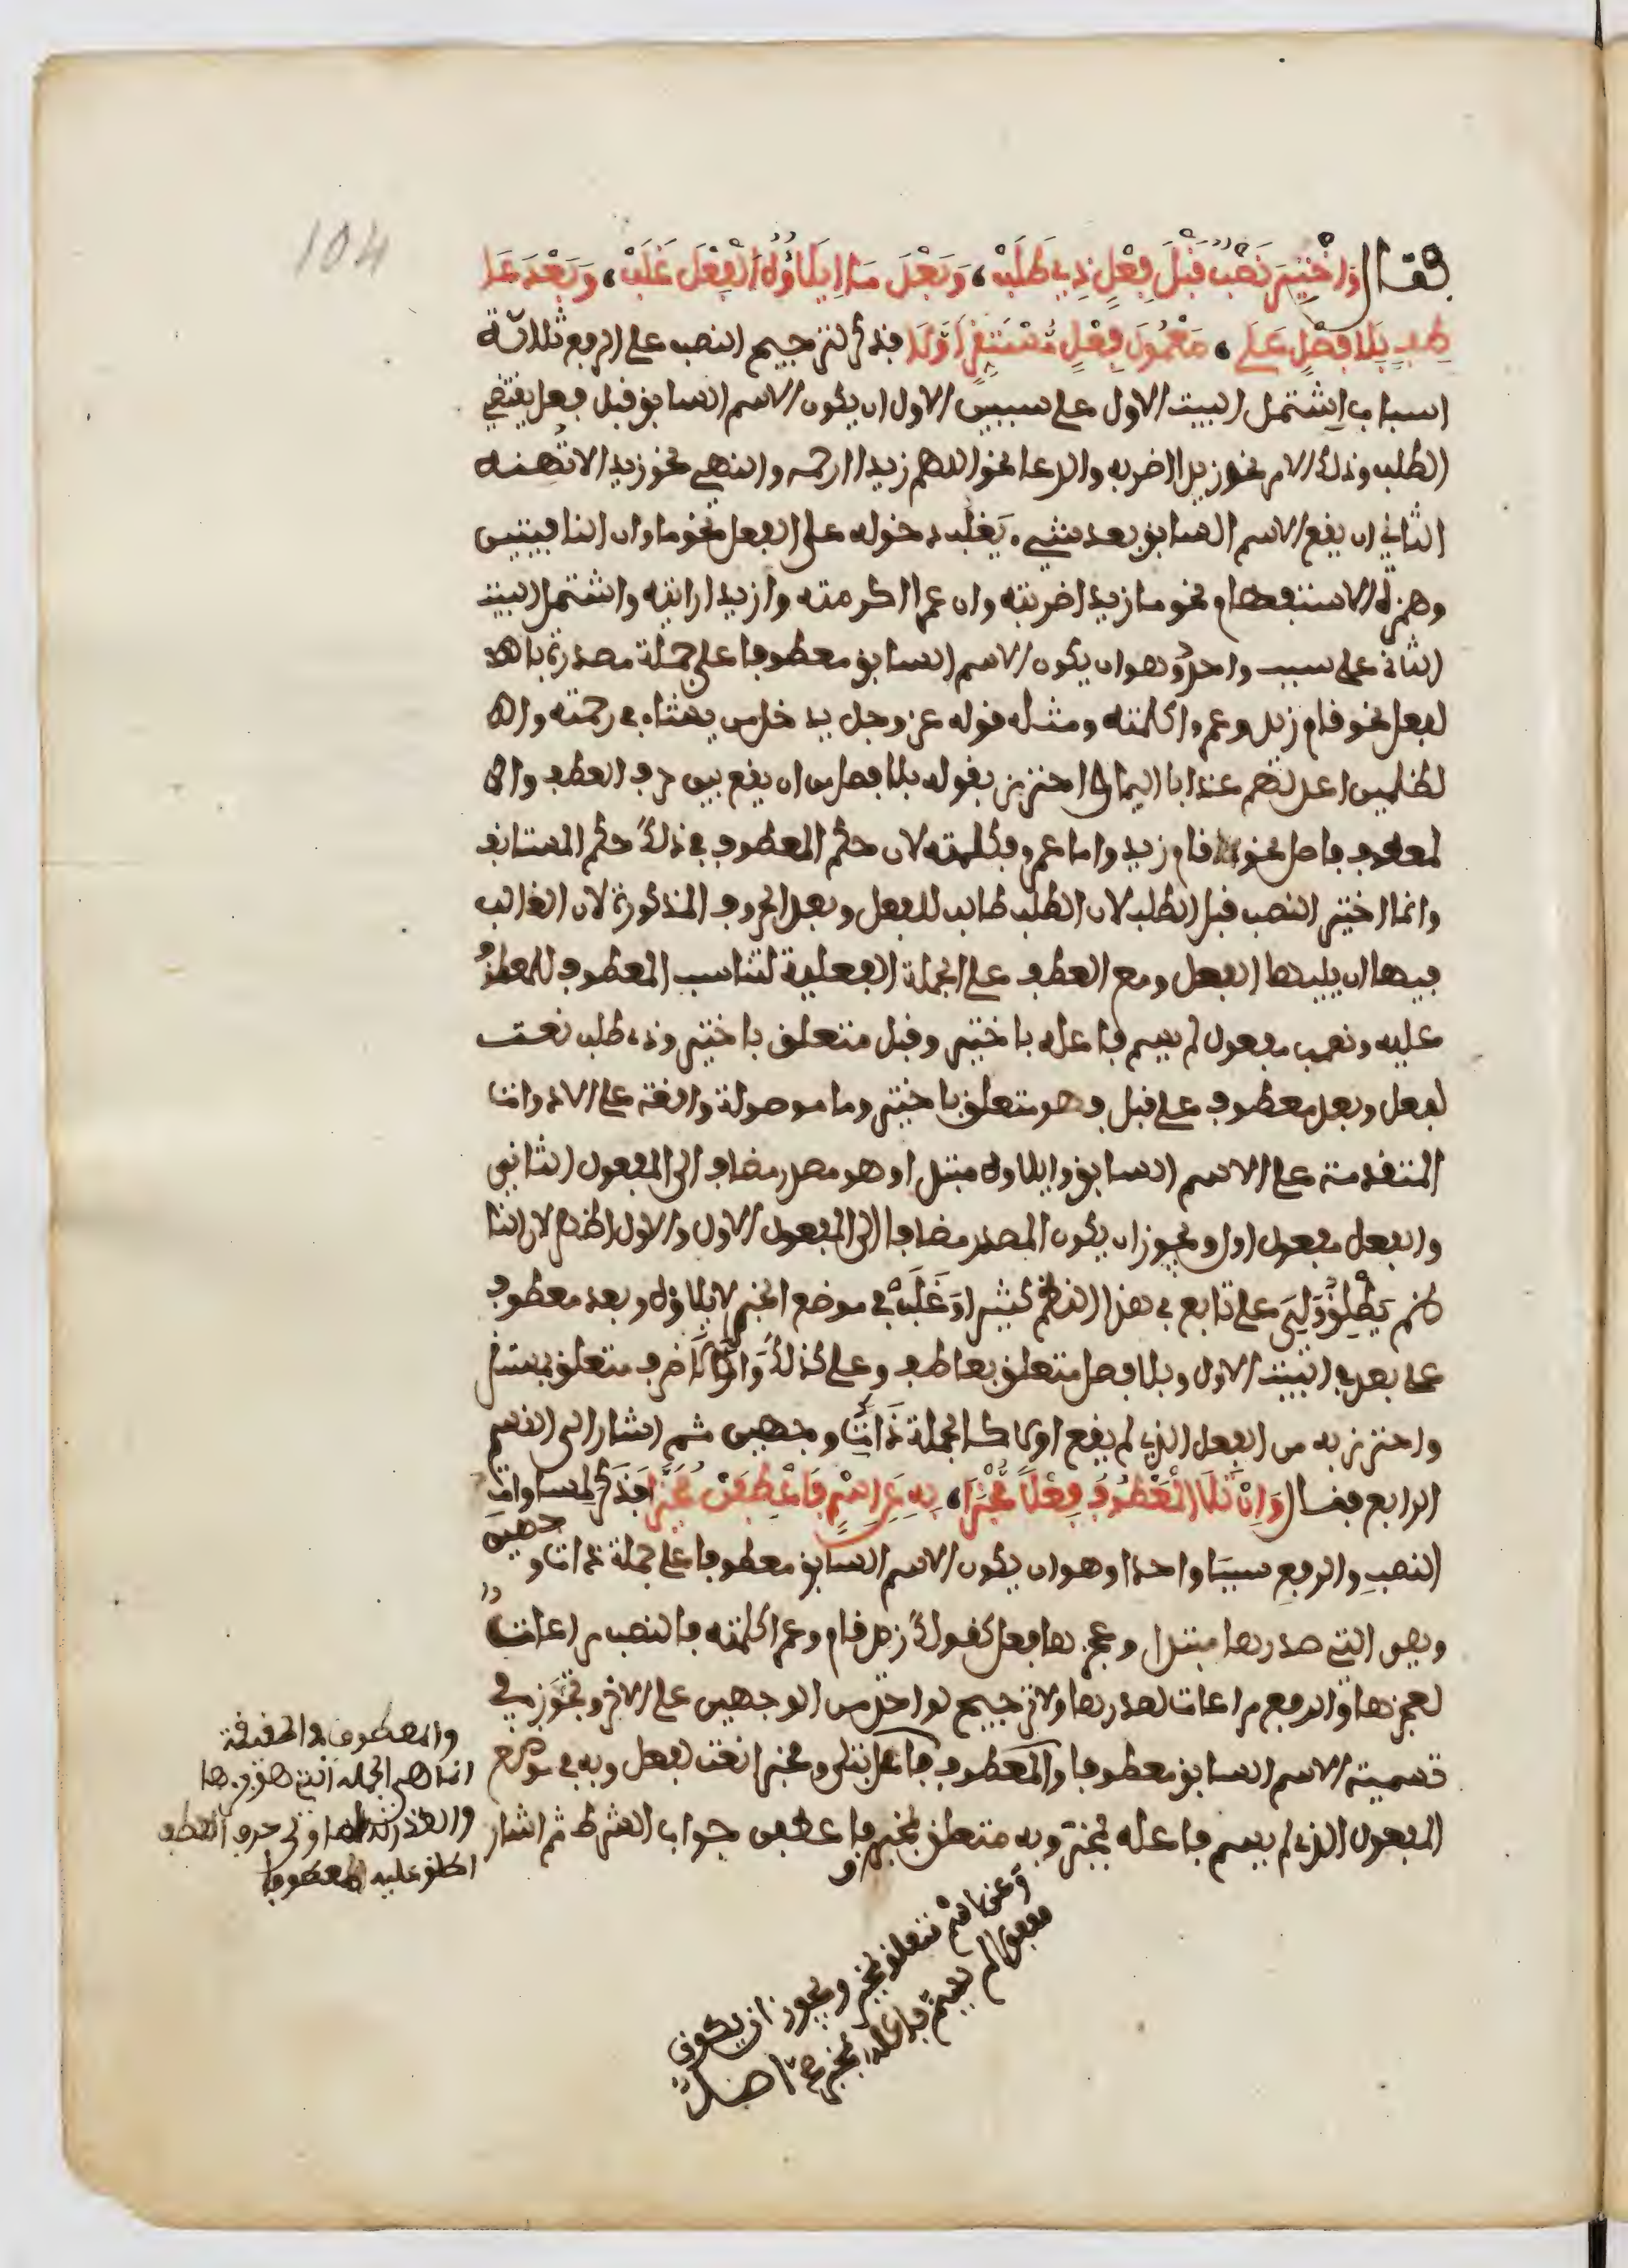 104
فقال وَاخْتِيرَ نَصْبٌ قَبْلَ فِعْلٍ ذِي طَلَبْ، وَبَعْدَ مَا إِيلَاؤُهُ الْفِعْلَ غَلَبْ، وَبَعْدَ عَا
طِفٍ بِلَا فَصْلٍ عَلَى، مَعْمُولِ فِعْلٍ مُسْتَقِرٍّ أَوَّلَا فذكر لترجيح النصب على الرفع ثلاثة
اسباب اشتمل البيت الاول على سببين الاول ان يكون الاسم السابق قبل فعل يقتضي
الطلب وذلك الامر نحو زيدا اضربه والدعا نحو اللهم زيدا ارحمه والنهي نحو زيدا لا تهنه
الثاني ان يقع الاسم السابق بعد شيء يَغلب دخوله على الفعل نحو ما وان النافيتين
وهمزة الاستفهام نحو ما زيدا ضربته وان عمرا اكرمته وازيدا رايته واشتمل البيت
الثاني على سبب واحد وهو ان يكون الاسم السابق معطوفا على جملة مصدرة بالفعـ
لفعل نحو قام زيد وعمرا كلمته ومثله قوله عز وجل يدخل من يشاء في رحمته والظ
لظلمين اعد لهم عذابا اليما واحترز بقوله بلا فصل من ان يقع بين حرف العطف والـ
لمعطوف فاصل نحو قام زيد واما عمرو فكلمته لان حكم المعطوف في ذلك حكم المستانف
وانما اختير النصب قبل الطلب لان الطلب طالب للفعل وبعد الحروف المذكورة لان الغالب
فيها ان يليها الفعل ومع العطف على الجملة الفعلية لتناسب المعطوف للمعطوف
عليه ونصب مفعول لم يسم فاعله باختير وقبل متعلق باختير وذي طلب نعت
لفعل وبعد معطوف على قبل فهو متعلق باختير وما موصولة واقعة على الادوات
المتقدمة على الاسم السابق وايلاوه مبتدا وهو مصدر مضاف الى المفعول الثاني
والفعل مفعول اول ويجوز ان يكون المصدر مضافا الى المفعول الاول والاول اظهر لان اطلا
ق يطلق وَلِيَ على تابع في هذا النظم كثيرا وَغَلَبْ في موضع الخبر لايلاؤه وبعد معطوف
على بعد في البيت الاول وبلا فصل متعلق بعاطف وعلى كذلك وَاوَّلَا ظرف متعلق بمستقر
واحترز به من الفعل الذي لم يقع اولا كالجملة ذَاتِ وجهين ثم اشار الى القسم
الرابع فقال وَإِنْ تَلَا الْمَعْطُوفُ فِعْلًا مُخْبَرَا، بِهِ عَنِ اسْمٍ فَاعْطِفَنْ مُخَيَّرَا فذَكَرَ لمساوات
النصب والرفع سببَا واحدا وهو ان يكون الاسم السابق معطوفا على جملة ذات وجهين
وهي التي صدرها مبتدا وعجزها فعل كقولك زيد قام وعمرا كلمته فالنصب مراعات
لعجزها والرفع مراعات لصدرها ولا ترجيح لواحد من الوجهين على الاخر وتجَوَّز في
تسمية الاسم السابق معطوفا والمعطوف فاعل بتلى ومخبرا نعت لفعل وبه في موضع
المفعول الذي لم يسم فاعله لمخبر وبه متعلق بمخبر فاعطفن جواب الشرط ثم اشار
والمعطوف في الحقيقة
انما هي الجملة التي هو جزءها
والعذر انه لما ولي حرف العطف
اطلق عليه معطوفا
وعن اسم متعلق بمخبر ويجوز ان يكون
مفعول لم يسم فاعله بمخبر صح اصل